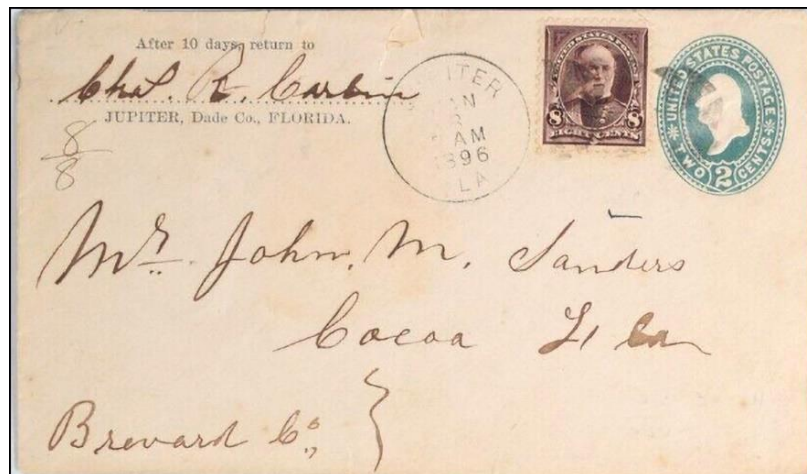 After 10 days, return to
Chas. R. Carlin
JUPITER, Dade Co., FLORIDA.
8
8
JUPITER
JAN
AM
1896
FLA
UNITED STATES POSTAGE
8 8
EIGHT CENTS
UNITED STATES POSTAGE
TWO 2 CENTS
Mr. John. M. Sanders
Cocoa Fla
Brevard Co